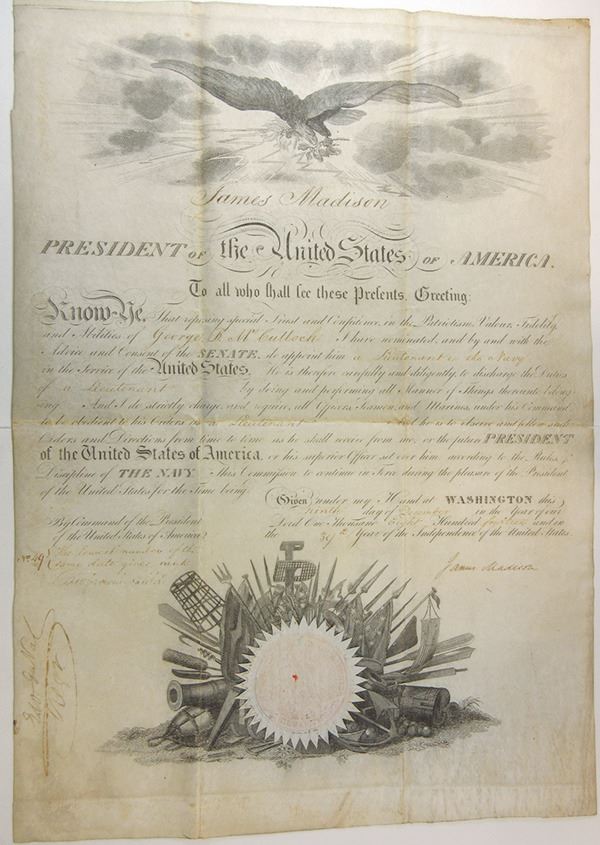 James Madison
PRESIDENT OF the United States OF AMERICA.
To all who shall see these Presents, Greeting:
Know Ye, That reposing special Trust and Confidence in the Patriotism, Valour, Fidelity,
and Abilities of George R. McCulloch I have nominated, and by and with the
Advice and Consent of the SENATE, do appoint him a Lieutenant in the Navy
in the Service of the United States. He is therefore carefully and diligently to discharge the Duties
of a Lieutenant By doing and performing all Manner of Things thereunto belong-
ing. And I do strictly charge, and require, all Officers, Seamen, and Marines, under his Command
to be obedient to his Orders as a Lieutenant And he is to observe and follow such
Orders and Directions from time to time as he shall receive from me, or the future PRESIDENT
of the United States of America, or his superior Officer set over him according to the Rules &
Discipline of THE NAVY. This Commission to continue in Force during the pleasure of the President
of the United States for the Time being.
Given under my Hand at WASHINGTON this
ninth day of December in the Year of our
Lord One Thousand Eight Hundred fourteen and in
the 39th Year of the Independence of the United States.
By Command of the President
of the United States of America.
No. 49
The lowest number of the
same date gives rank
James Madison